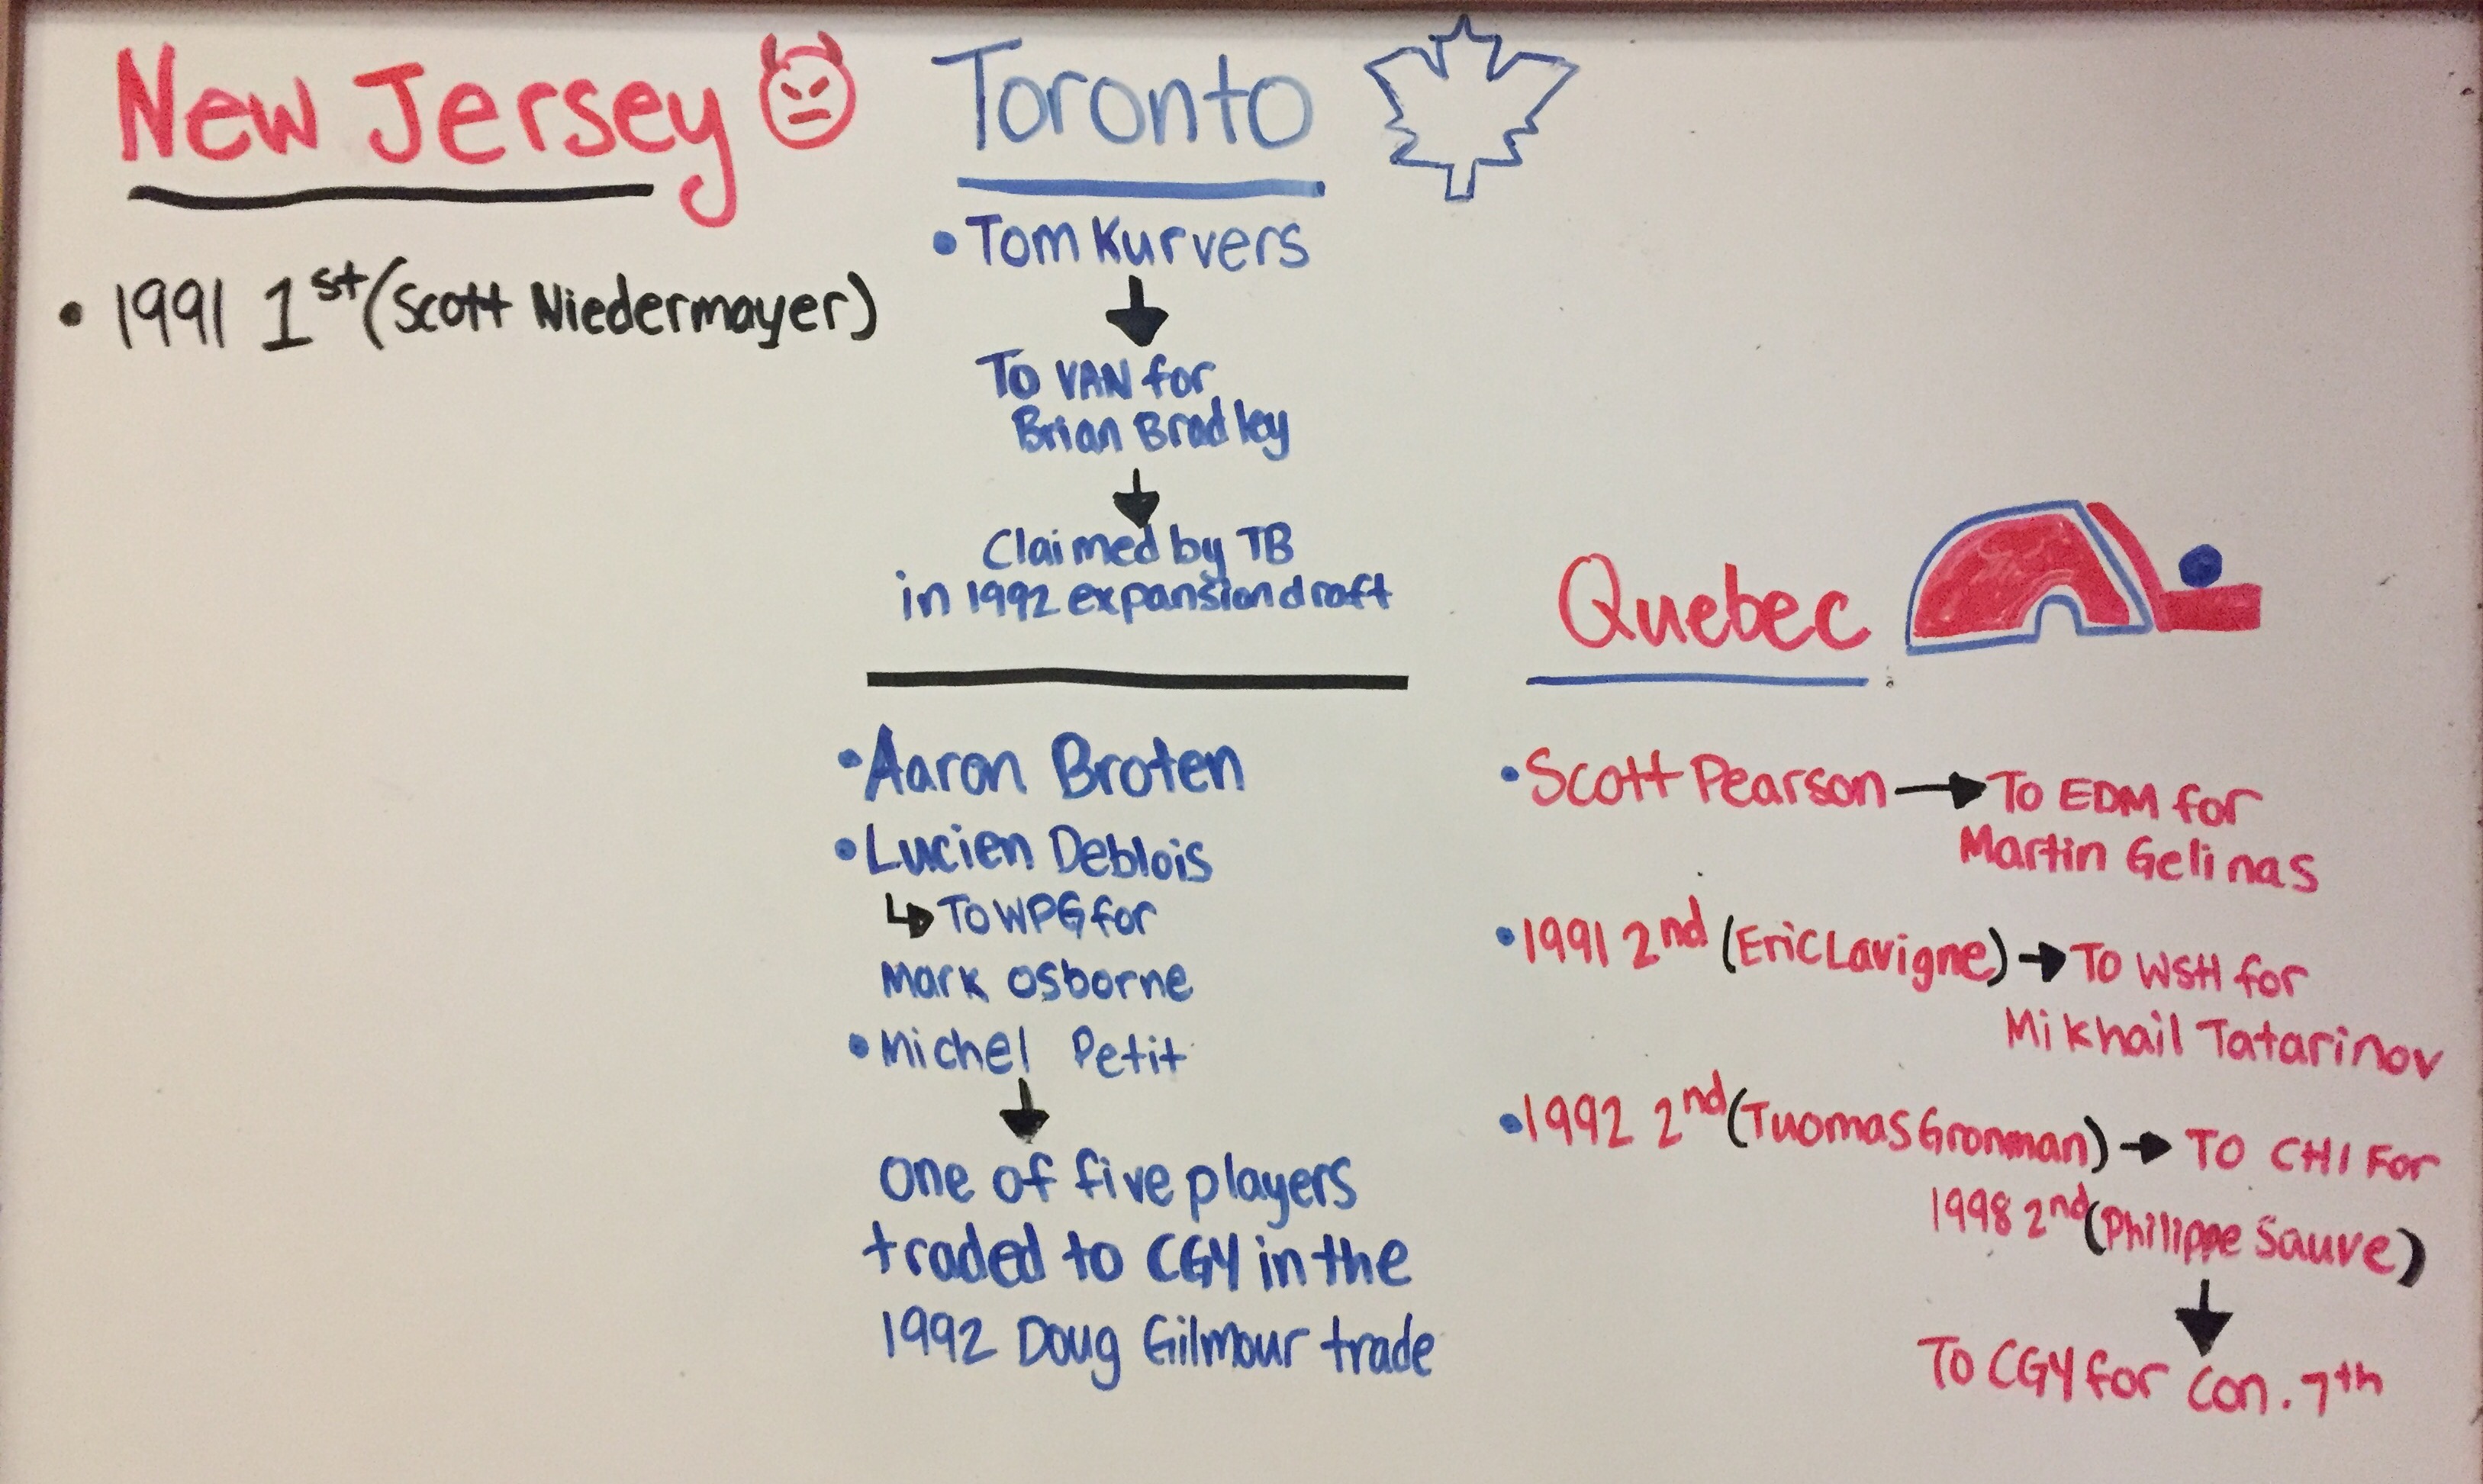 New Jersey
• 1991 1st (Scott Niedermayer)
Toronto
• Tom Kurvers
To VAN for
Brian Bradley
Claimed by TB
in 1992 expansion draft
• Aaron Broten
• Lucien Deblois
To WPG for
Mark Osborne
• Michel Petit
One of five players
traded to CGY in the
1992 Doug Gilmour trade
Quebec
• Scott Pearson → To EDM for
Martin Gelinas
• 1991 2nd (Eric Lavigne) → To WSH for
Mikhail Tatarinov
• 1992 2nd (Tuomas Gronman) → To CHI For
1998 2nd (Philippe Sauve)
To CGY for Con. 7th